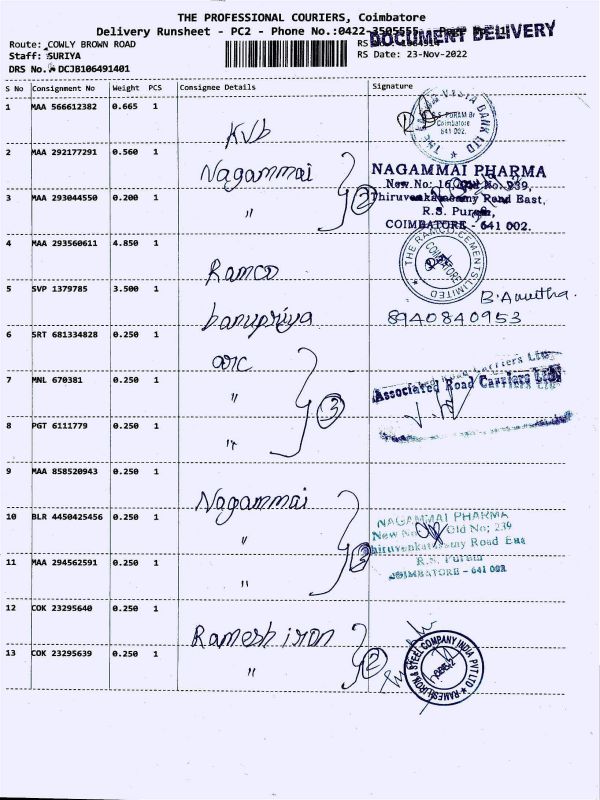 THE PROFESSIONAL COURIERS, Coimbatore
Delivery Runsheet - PC2 - Phone No.:0422-3505555
DOCUMENT DELIVERY
Route: COWLY BROWN ROAD
Staff: SURIYA
RS Date: 23-Nov-2022
DRS No. DCJB106491401
S No Consignment No Weight PCS Consignee Details Signature
1 MAA 566612382 0.665 1
KVB
R.S. PURAM Br
Coimbatore
641 002.
2 MAA 292177291 0.560 1
Nagammai
NAGAMMAI PHARMA
New No: 16, Old No. 239,
3 MAA 293044550 0.200 1
" 2
Thiruvenkatasamy Road East,
R.S. Puram,
COIMBATORE - 641 002.
4 MAA 293560611 4.850 1
Ramco
THE RAMCO CEMENTS LIMITED
COIMBATORE
5 SVP 1379785 3.500 1
banupriya
B. Anutha.
8940840953
6 SRT 681334828 0.250 1
arc
7 MNL 670381 0.250 1
" 3
Associated Road Carriers Ltd
8 PGT 6111779 0.250 1
"
9 MAA 858520943 0.250 1
Nagammai
10 BLR 4450425456 0.250 1
"
NAGAMMAI PHARMA
New No Old No; 239
Thiruvenkatasamy Road Eas
R.S. Puram
COIMBATORE - 641 002
11 MAA 294562591 0.250 1
" 3
12 COK 23295640 0.250 1
Ramesh iron
13 COK 23295639 0.250 1
" 2
RAMESH IRON & STEEL COMPANY INDIA PVT LTD